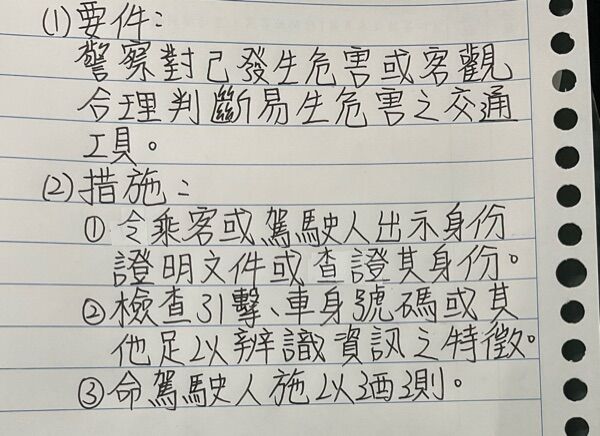 (1)要件：
警察對已發生危害或客觀
合理判斷易生危害之交通
工具。
(2)措施：
①令乘客或駕駛人出示身份
證明文件或查證其身份。
②檢查引擊、車身號碼或其
他足以辨識資訊之特徵。
③命駕駛人施以酒測。